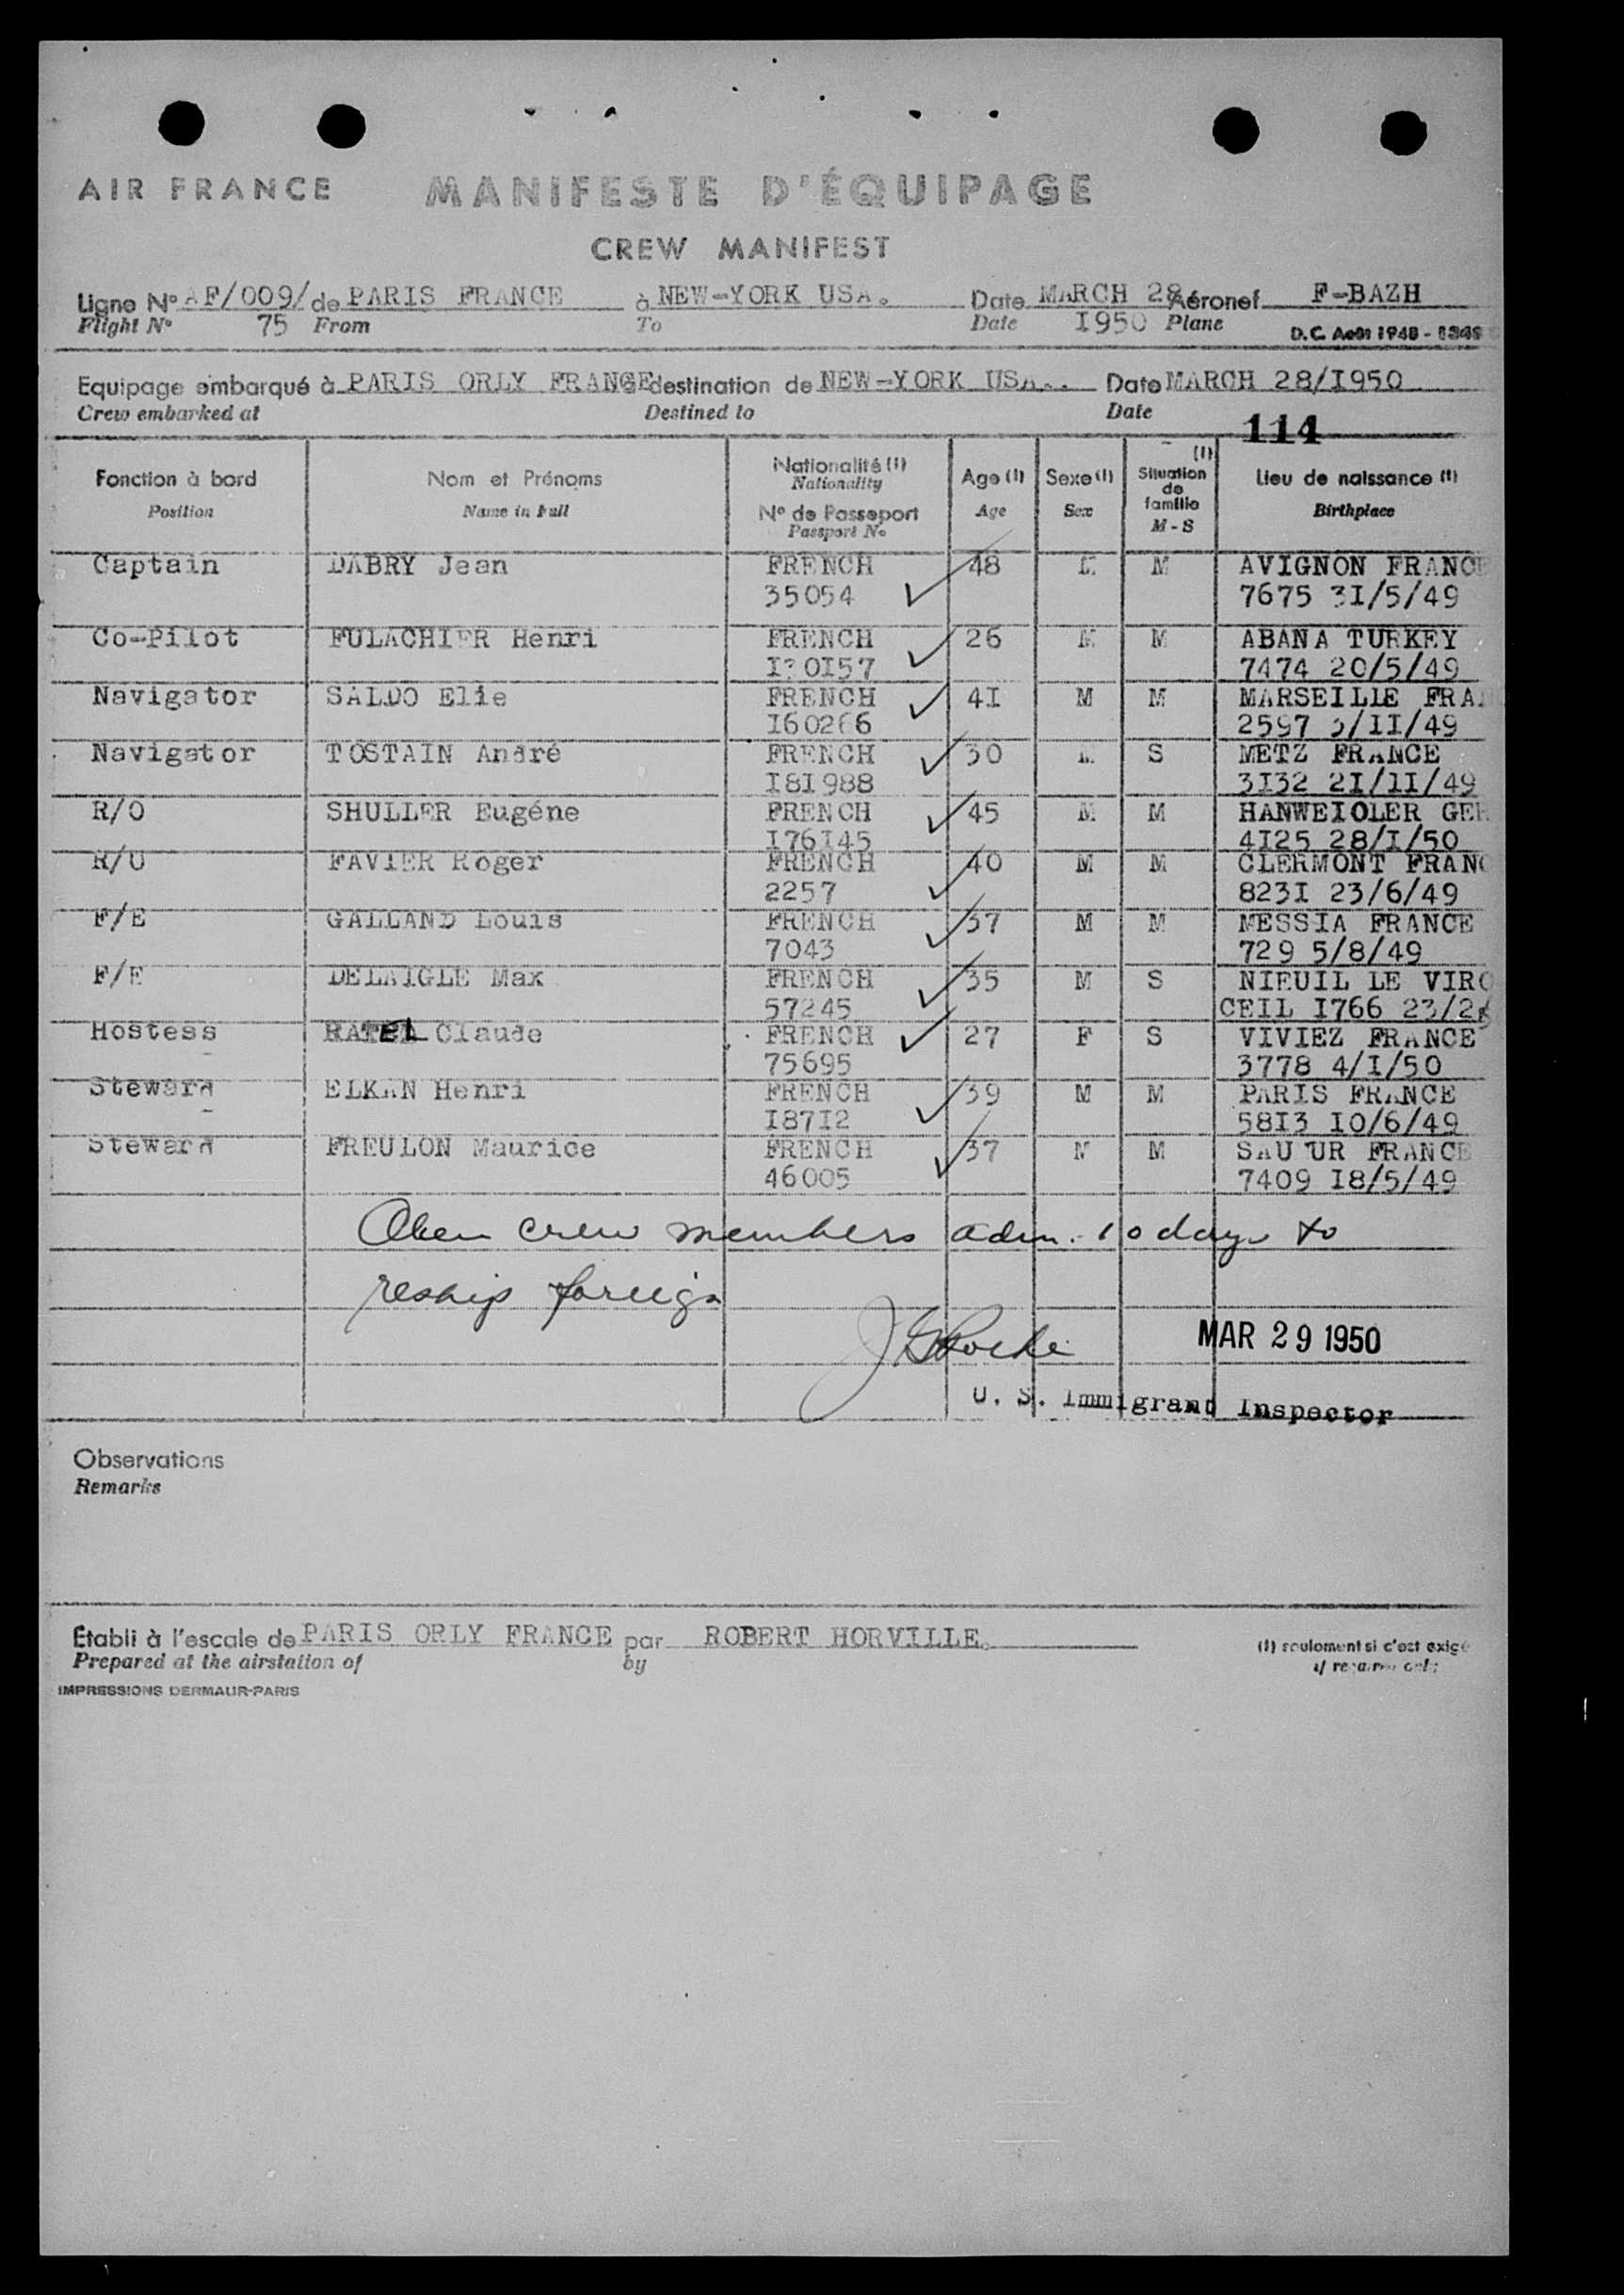 AIR FRANCE MANIFESTE D'ÉQUIPAGE
CREW MANIFEST
Ligne No AF/009/ de PARIS FRANCE à NEW-YORK USA. Date MARCH 28 Aéronef F-BAZH
Flight No 75 From To Date I950 Plane D.C. Août 1948 -
Equipage embarqué à PARIS ORLY FRANCE destination de NEW-YORK USA.. Date MARCH 28/I950
Crew embarked at Destined to Date
114
Fonction à bord Nom et Prénoms Nationalité (1) Age (1) Sexe (1) Situation de famille (1) Lieu de naissance (1)
Position Name in full Nationality Age Sex M - S Birthplace
No de Passeport
Passport No
Captain DABRY Jean FRENCH 48 M M AVIGNON FRANCE
35054 7675 3I/5/49
Co-Pilot FULACHIER Henri FRENCH 26 M M ABANA TURKEY
7474 20/5/49
Navigator SALDO Elie FRENCH 4I M M MARSEILLE FRAN
I60266 2597 /II/49
Navigator TOSTAIN André FRENCH 30 M S METZ FRANCE
I8I988 3I32 2I/II/49
R/O SHULLER Eugéne FRENCH 45 M M HANWEIOLER GER
I76I45 4I25 28/I/50
R/O FAVIER Roger FRENCH 40 M M CLERMONT FRANC
2257 823I 23/6/49
F/E GALLAND Louis FRENCH 37 M M MESSIA FRANCE
7043 729 5/8/49
F/E DELAIGLE Max FRENCH 35 M S NIEUIL LE VIRO
57245 CEIL I766 23/2
Hostess RATEL Claude FRENCH 27 F S VIVIEZ FRANCE
75695 3778 4/I/50
Steward ELKAN Henri FRENCH 39 M M PARIS FRANCE
I87I2 58I3 I0/6/49
Steward FREULON Maurice FRENCH 37 M M SAU UR FRANCE
46005 7409 I8/5/49
Alien crew members adm. 10 days to
reship foreign
J G Roche MAR 29 1950
U. S. Immigrant Inspector
Observations
Remarks
Établi à l'escale de PARIS ORLY FRANCE par ROBERT HORVILLE. (1) seulement si c'est exigé
Prepared at the airstation of by if required only
IMPRESSIONS DERMAUR-PARIS